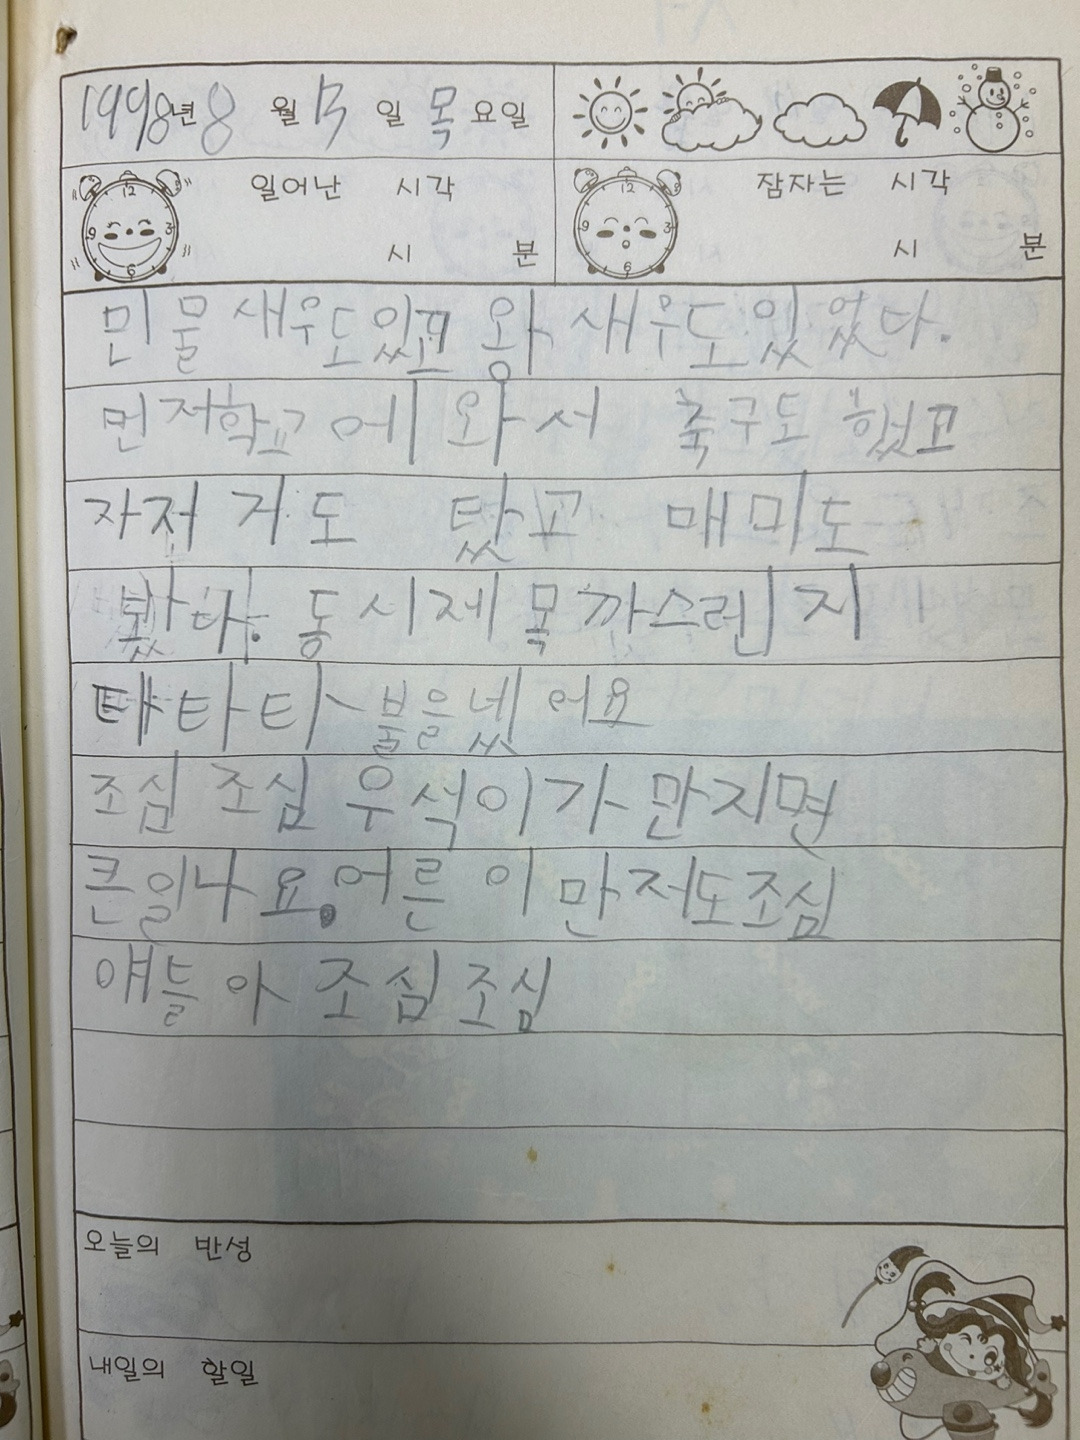 1998년 8 월 13 일 목 요일
일어난 시각
시 분
잠자는 시각
시 분
민물새우도있고 왕새우도있었다.
먼저학교에 와서 축구도 했고
자전거도 탔고 매미도
봤다. 동시제목까스렌지
타타타 불을넸어요
조심 조심 우석이가 만지면
큰일나요. 어른이 만저도조심
얘들아 조심조심
오늘의 반성
내일의 할일